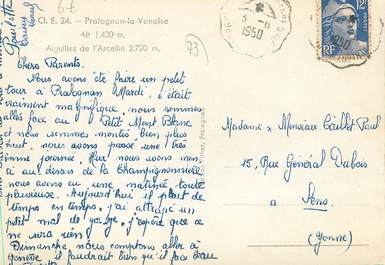 Cl. E. 24. - Pralognan-la-Vanoise
Alt 1.430 m.
Aiguilles de l'Arcellin 2.720 m.
73
Chers Parents.
Nous avons été faire un petit
tour à Pralognan Mardi, c'était
vraiment magnifique, nous sommes
allés face au Petit Mont Blanc
et nous sommes montés bien plus
haut, nous avons passé une très
bonne journée. Hier nous avons
au dessus de la Champagny
nous avons eu une matinée toute
pluvieuse. Aujourd'hui il pleut de
temps en temps, j'ai attrapé un
petit mal de gorge, j'espère que ce
ne sera rien
Dimanche nous comptons aller à
genève, il faudrait bien qu'il fasse beau
3 - 11
1950
12F
RF
Madame & Monsieur Caillet Paul
15, Rue Général Dubois
à Sens
(Yonne)